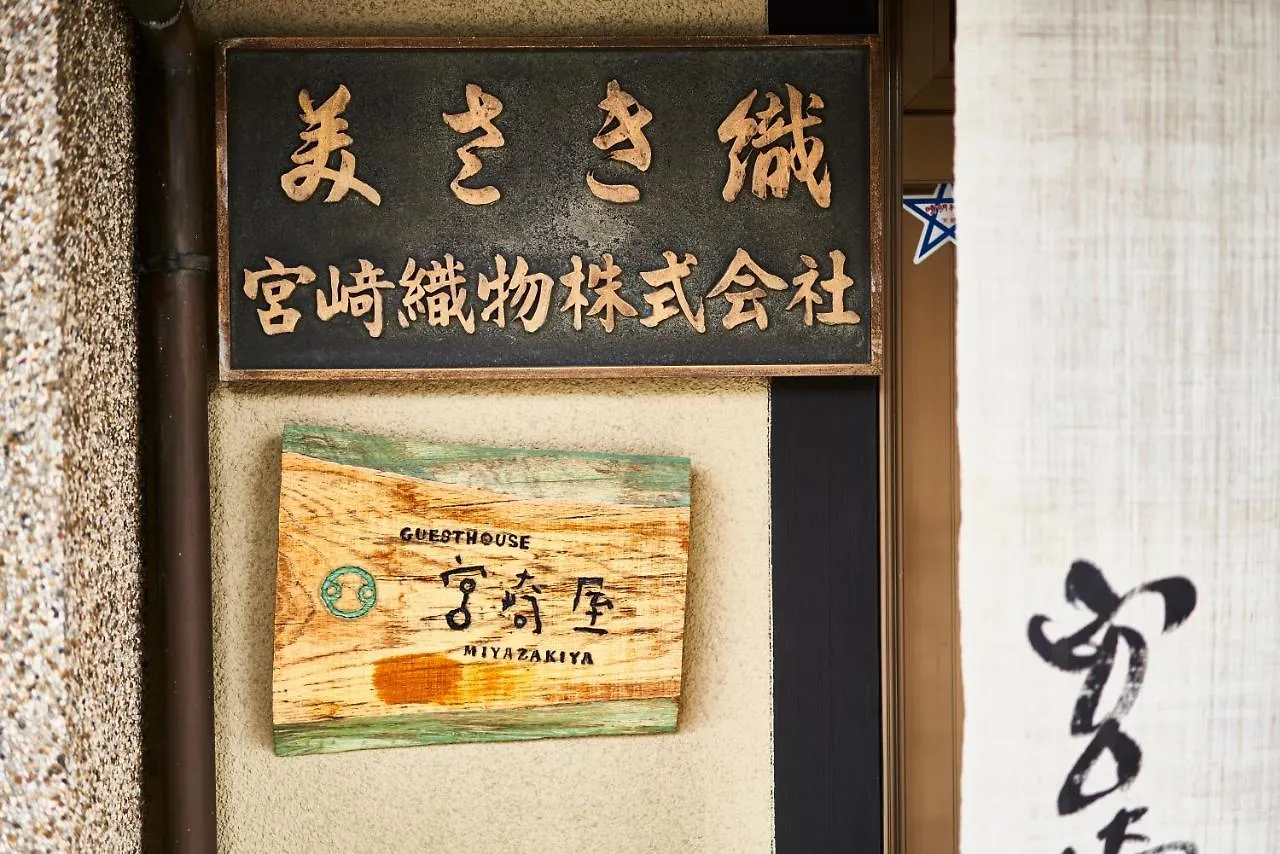 美さき織
宮﨑織物株式会社
GUESTHOUSE
宮崎屋
MIYAZAKIYA
宮